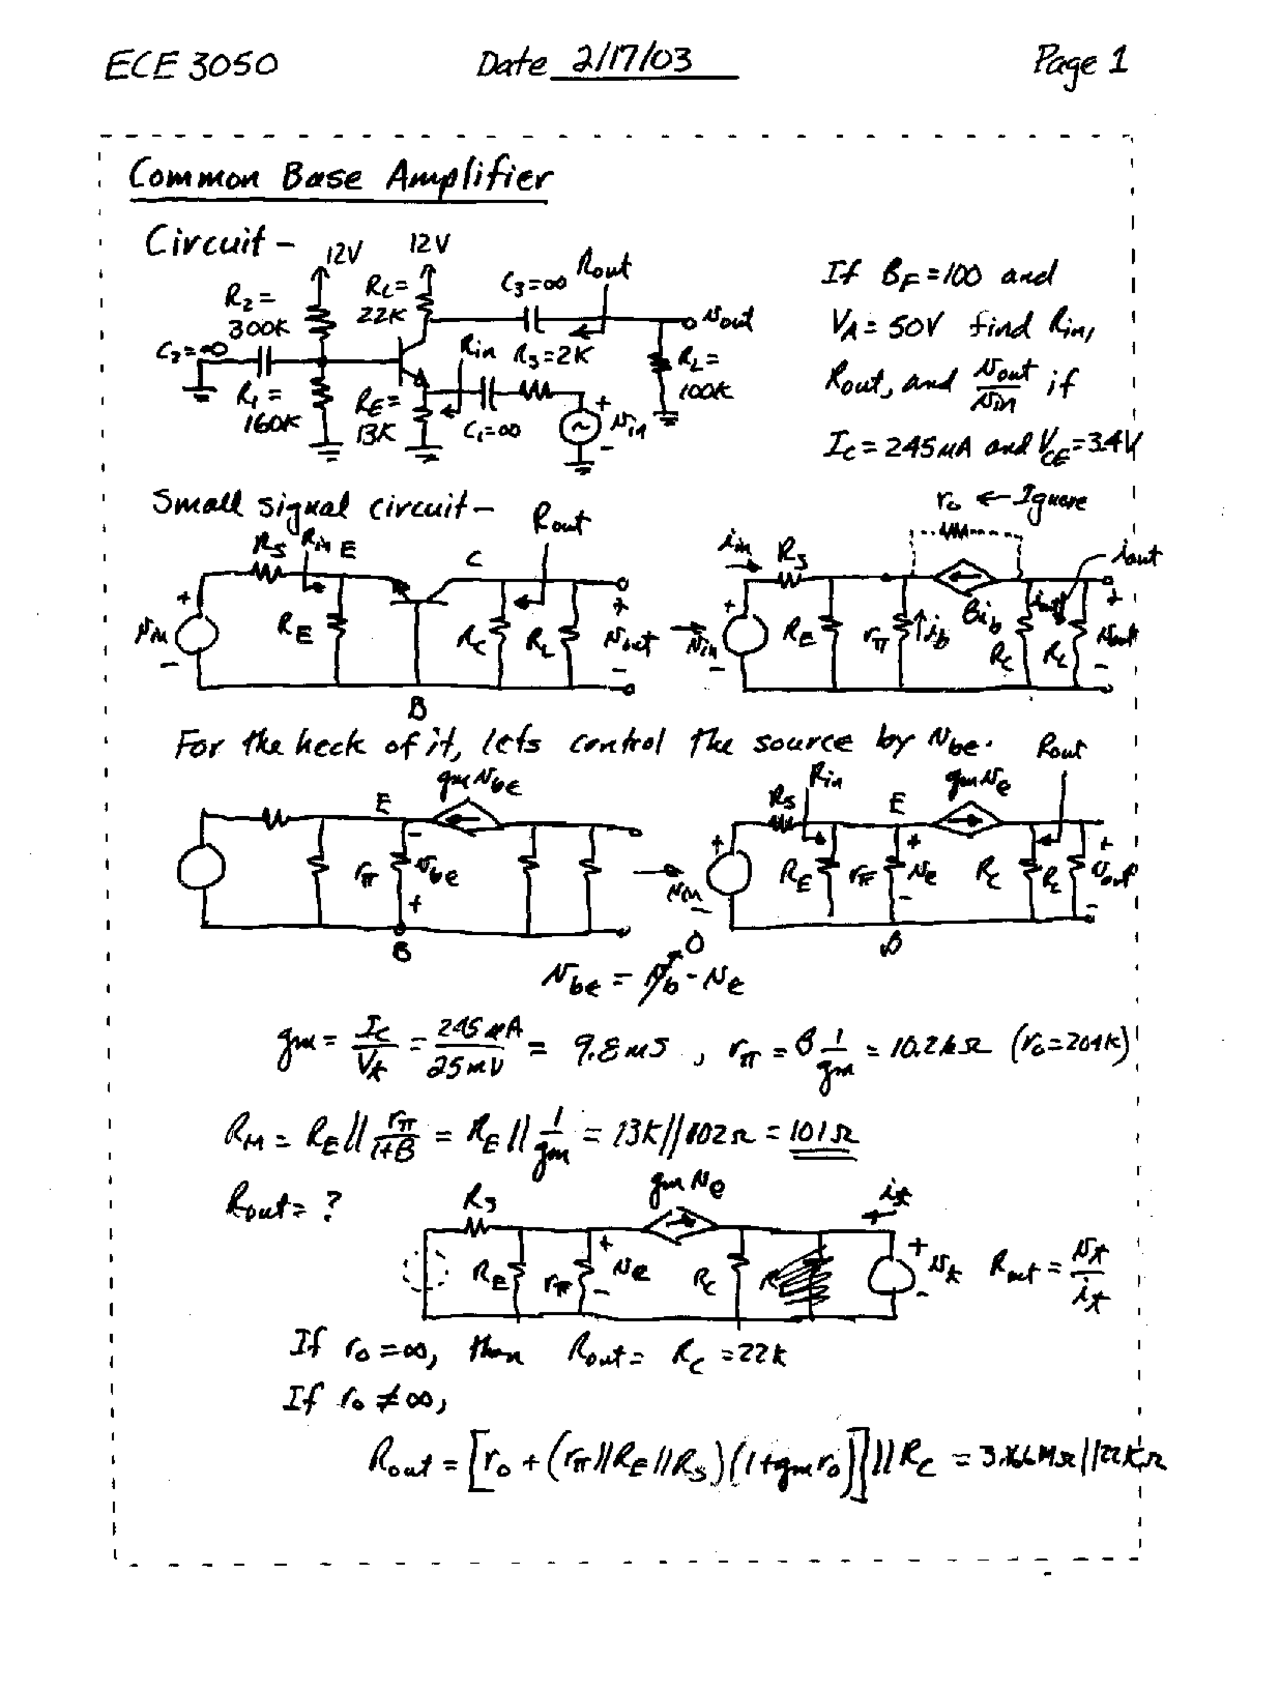 ECE 3050 Date 2/17/03 Page 1
Common Base Amplifier
Circuit –
12V 12V
R2 = 300K
RC = 22K
C3=∞
Rout
vout
C2=∞
Rin
RS=2K
RL= 100K
R1= 160K
RE= 13K
C1=∞
+
vin
-
If BF=100 and
VA= 50V find Rin,
Rout, and vout/vin if
IC=245μA and VCE=3.4V
Small signal circuit –
ro ← Ignore
RS Rin E C Rout
iin RS iout
+ vin - RE RC RL + vout -
B
→ + vin - RE rπ ↑ib βib RC iout RL + vout -
For the heck of it, lets control the source by vbe.
gmvbe
E - rπ vbe + B
→ Rin Rout
RS E gmve
+ vin - RE rπ + ve - RC RL + vout -
B
vbe = vb - ve
0
gm = IC/Vt = 245μA/25mV = 9.8mS , rπ = β 1/gm = 10.2kΩ (ro=204K)
RIN = RE // rπ/1+β = RE // 1/gm = 13K//102Ω = 101Ω
Rout = ?
RS gmve it
RE rπ + ve - RC + vt - Rout = vt/it
If ro = ∞, then Rout = RC = 22K
If ro ≠ ∞,
Rout = [ro + (rπ//RE//RS)(1+gmro)]//RC = MΩ//22KΩ